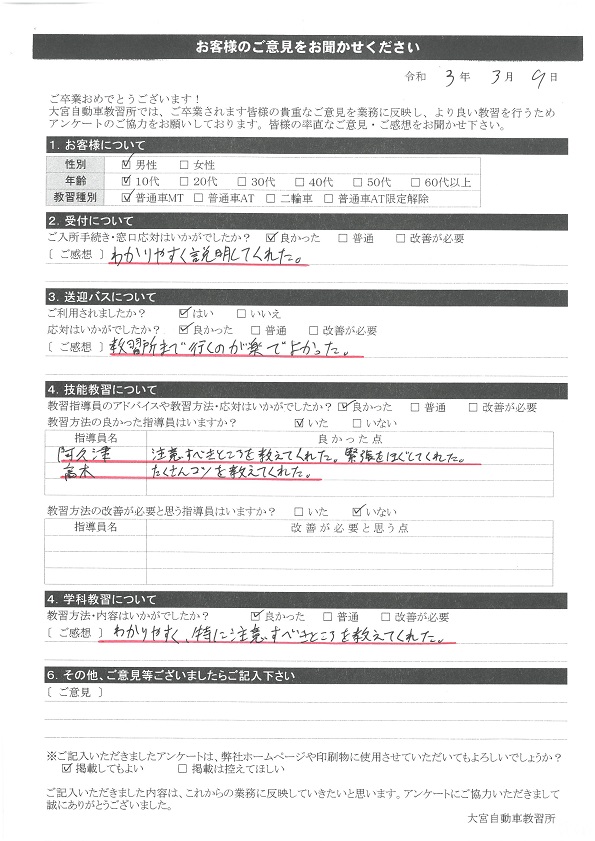 お客様のご意見をお聞かせください
令和 3 年 3 月 9 日
ご卒業おめでとうございます！
大宮自動車教習所では、ご卒業されます皆様の貴重なご意見を業務に反映し、より良い教習を行うため
アンケートのご協力をお願いしております。皆様の率直なご意見・ご感想をお聞かせ下さい。
1. お客様について
性別 ☑男性 □女性
年齢 ☑10代 □20代 □30代 □40代 □50代 □60代以上
教習種別 ☑普通車MT □普通車AT □二輪車 □普通車AT限定解除
2. 受付について
ご入所手続き・窓口応対はいかがでしたか？ ☑良かった □普通 □改善が必要
〔 ご感想 〕わかりやすく説明してくれた。
3. 送迎バスについて
ご利用されましたか？ ☑はい □いいえ
応対はいかがでしたか？ ☑良かった □普通 □改善が必要
〔 ご感想 〕教習所まで行くのが楽でよかった。
4. 技能教習について
教習指導員のアドバイスや教習方法・応対はいかがでしたか？ ☑良かった □普通 □改善が必要
教習方法の良かった指導員はいますか？ ☑いた □いない
指導員名 良かった点
阿久津 注意すべきところを教えてくれた。緊張をほぐしてくれた。
高木 たくさんコツを教えてくれた。
教習方法の改善が必要と思う指導員はいますか？ □いた ☑いない
指導員名 改善が必要と思う点
4. 学科教習について
教習方法・内容はいかがでしたか？ ☑良かった □普通 □改善が必要
〔 ご感想 〕わかりやすく、特に注意すべきところを教えてくれた。
6. その他、ご意見等ございましたらご記入下さい
〔 ご意見 〕
※ご記入いただきましたアンケートは、弊社ホームページや印刷物に使用させていただいてもよろしいでしょうか？
☑掲載してもよい □掲載は控えてほしい
ご記入いただきました内容は、これからの業務に反映していきたいと思います。アンケートにご協力いただきまして
誠にありがとうございました。
大宮自動車教習所